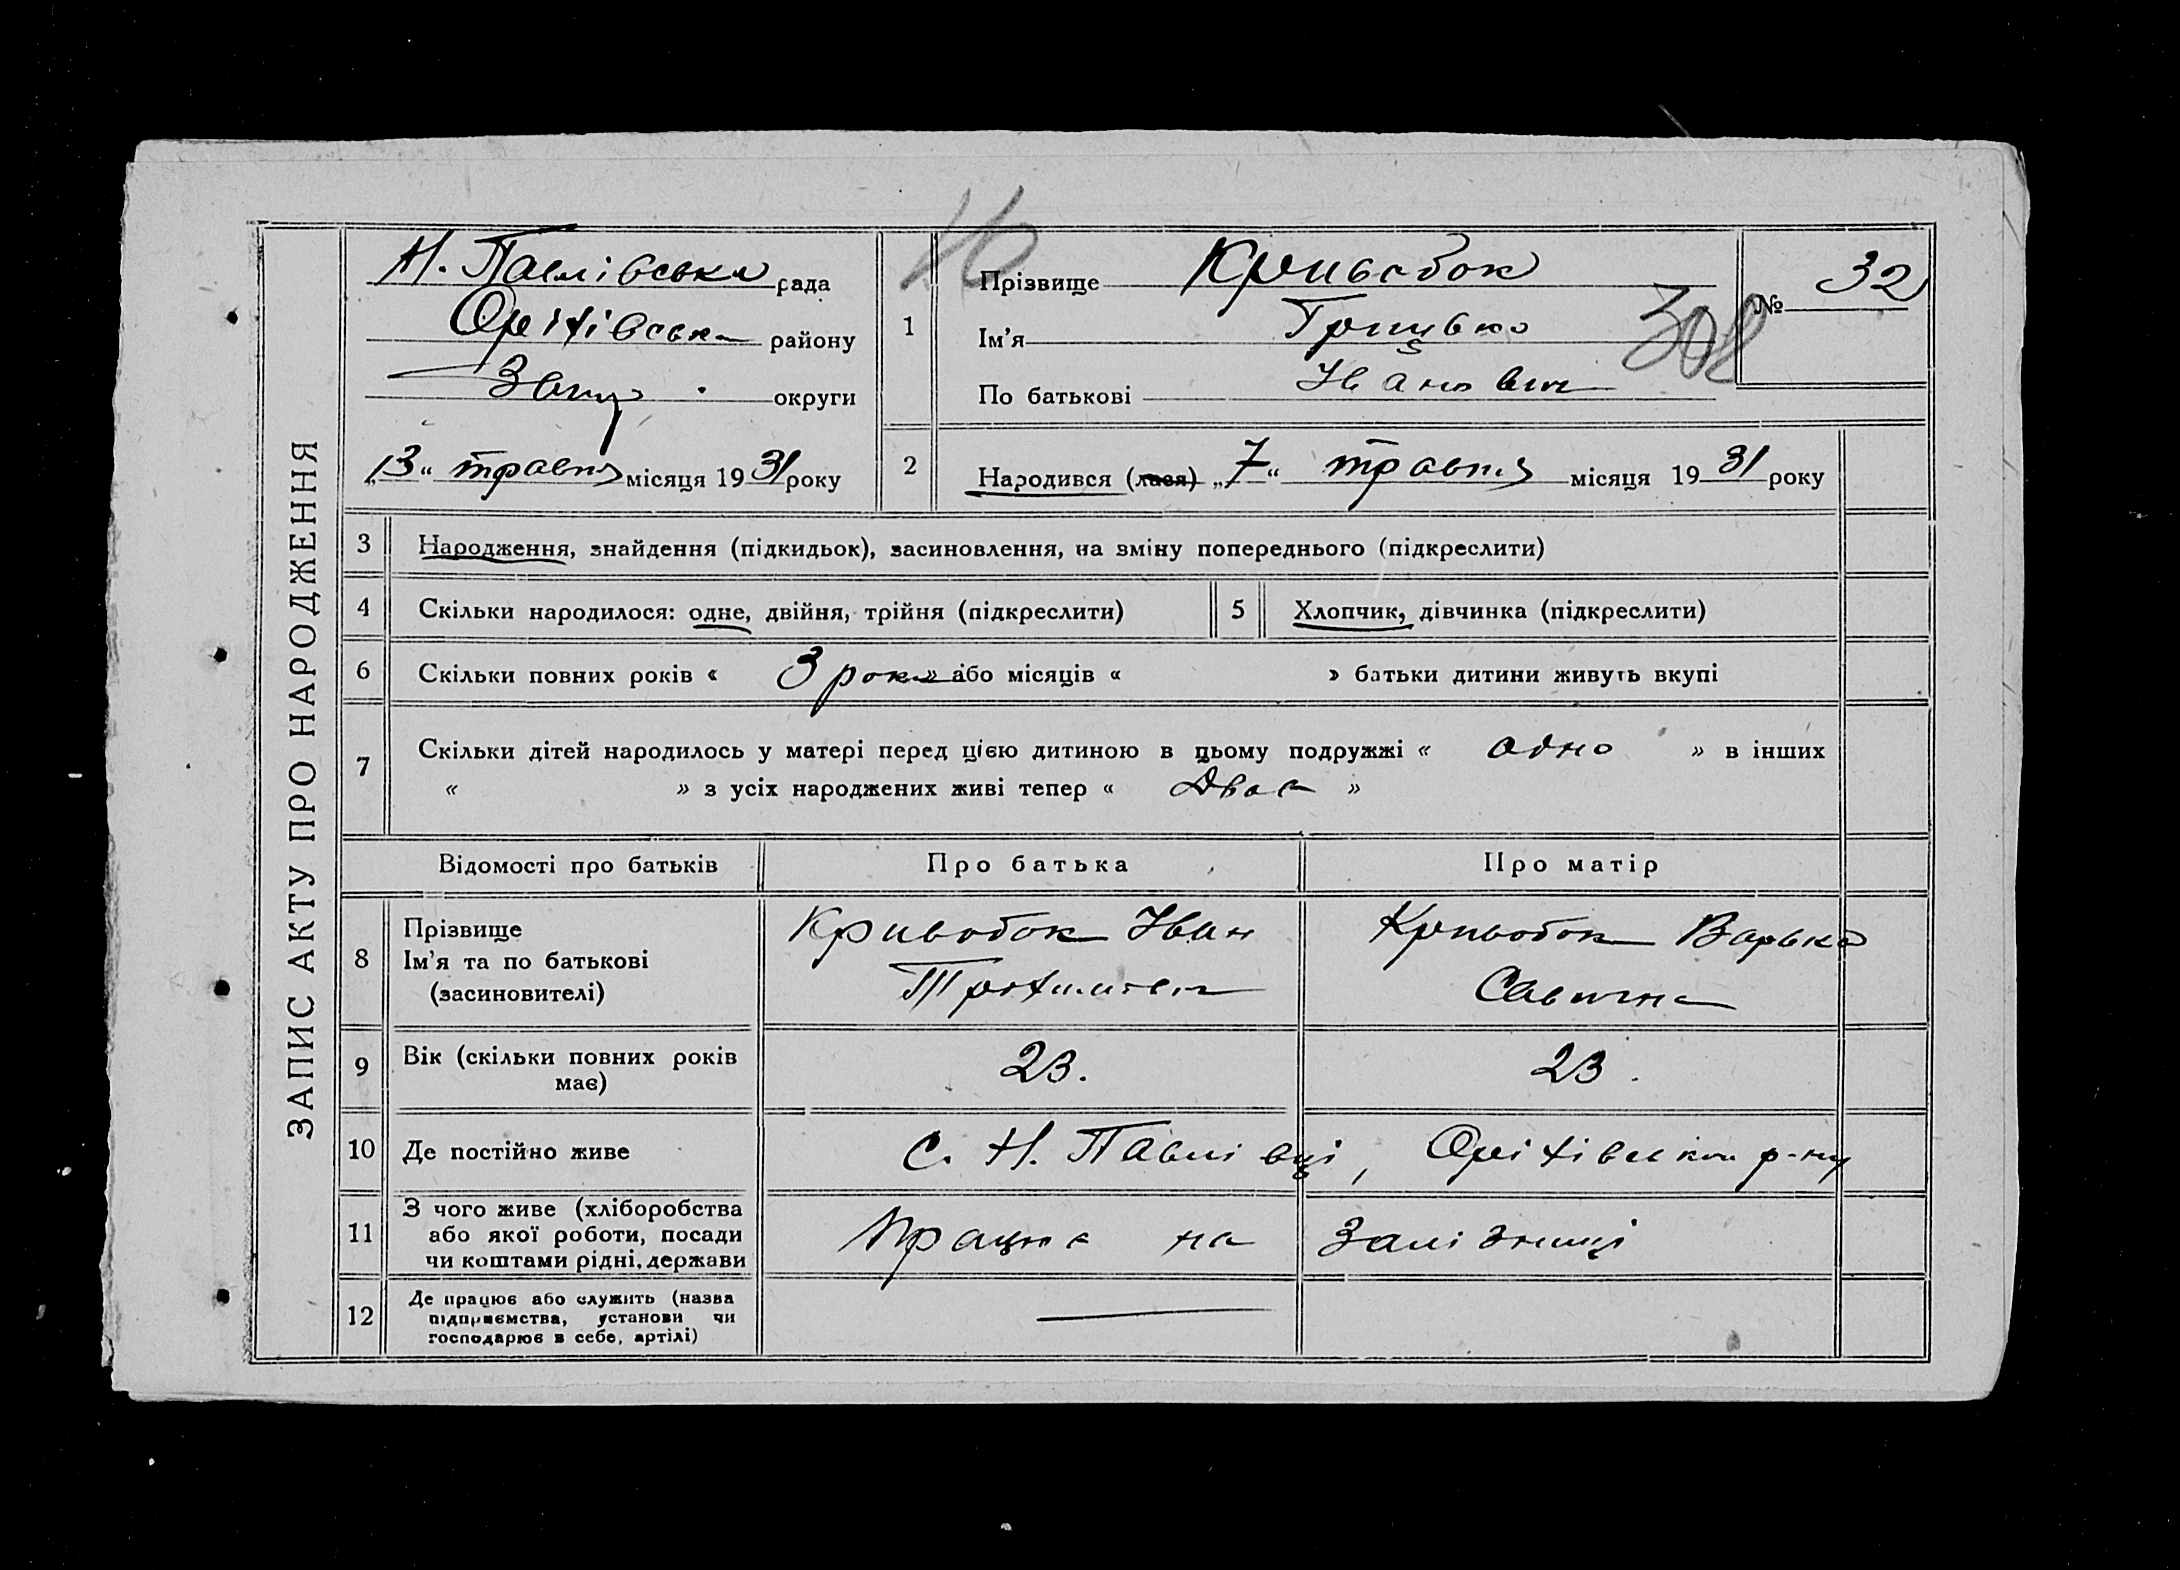 ЗАПИС АКТУ ПРО НАРОДЖЕННЯ
Н. Павлівська рада
Оріхівська району
Запор. округи
„13“ травня місяця 1931 року
40
1 Прізвище Кривобок
Ім'я Грицько
По батькові Іванович
308
№ 32
2 Народився (лася) „7“ травня місяця 1931 року
3 Народження, знайдення (підкидьок), засиновлення, на зміну попереднього (підкреслити)
4 Скільки народилося: одне, двійня, трійня (підкреслити) 5 Хлопчик, дівчинка (підкреслити)
6 Скільки повних років « 3 роки » або місяців « » батьки дитини живуть вкупі
7 Скільки дітей народилось у матері перед цією дитиною в цьому подружжі « одно » в інших
« » з усіх народжених живі тепер « Двоє »
Відомості про батьків Про батька Про матір
8 Прізвище Ім'я та по батькові (засиновителі)
Кривобок Іван
Трохимович
Кривобок Варька
Савична
9 Вік (скільки повних років має) 23. 23.
10 Де постійно живе с. Н. Павлівці, Оріхівськом р-ну
11 З чого живе (хліборобства
або якої роботи, посади
чи коштами рідні, держави
Працює на Залізниці
12 Де працює або служить (назва
підприємства, установи чи
господарює в себе, артілі)